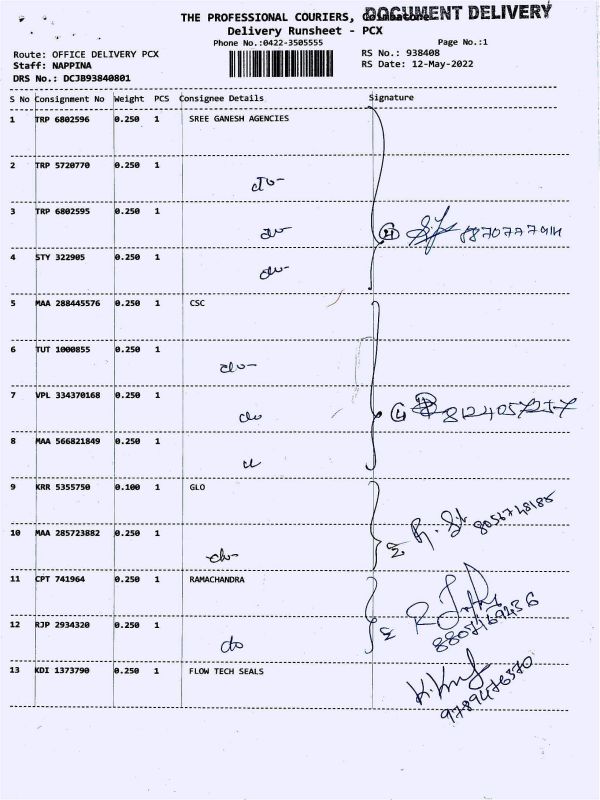 THE PROFESSIONAL COURIERS, Coimbatore
DOCUMENT DELIVERY
Delivery Runsheet - PCX
Phone No.:0422-3505555
Page No.:1
Route: OFFICE DELIVERY PCX
RS No.: 938408
Staff: NAPPINA
RS Date: 12-May-2022
DRS No.: DCJB93840801
S No Consignment No Weight PCS Consignee Details Signature
1 TRP 6802596 0.250 1 SREE GANESH AGENCIES
2 TRP 5720770 0.250 1
do-
3 TRP 6802595 0.250 1
do-
4
4 STY 322905 0.250 1
do-
5 MAA 288445576 0.250 1 CSC
6 TUT 1000855 0.250 1
do-
7 VPL 334370168 0.250 1
do
4 8124057257
8 MAA 566821849 0.250 1
9 KRR 5355750 0.100 1 GLO
8056748185
10 MAA 285723882 0.250 1
do-
11 CPT 741964 0.250 1 RAMACHANDRA
12 RJP 2934320 0.250 1
do
8807469436
13 KDI 1373790 0.250 1 FLOW TECH SEALS
9789476370